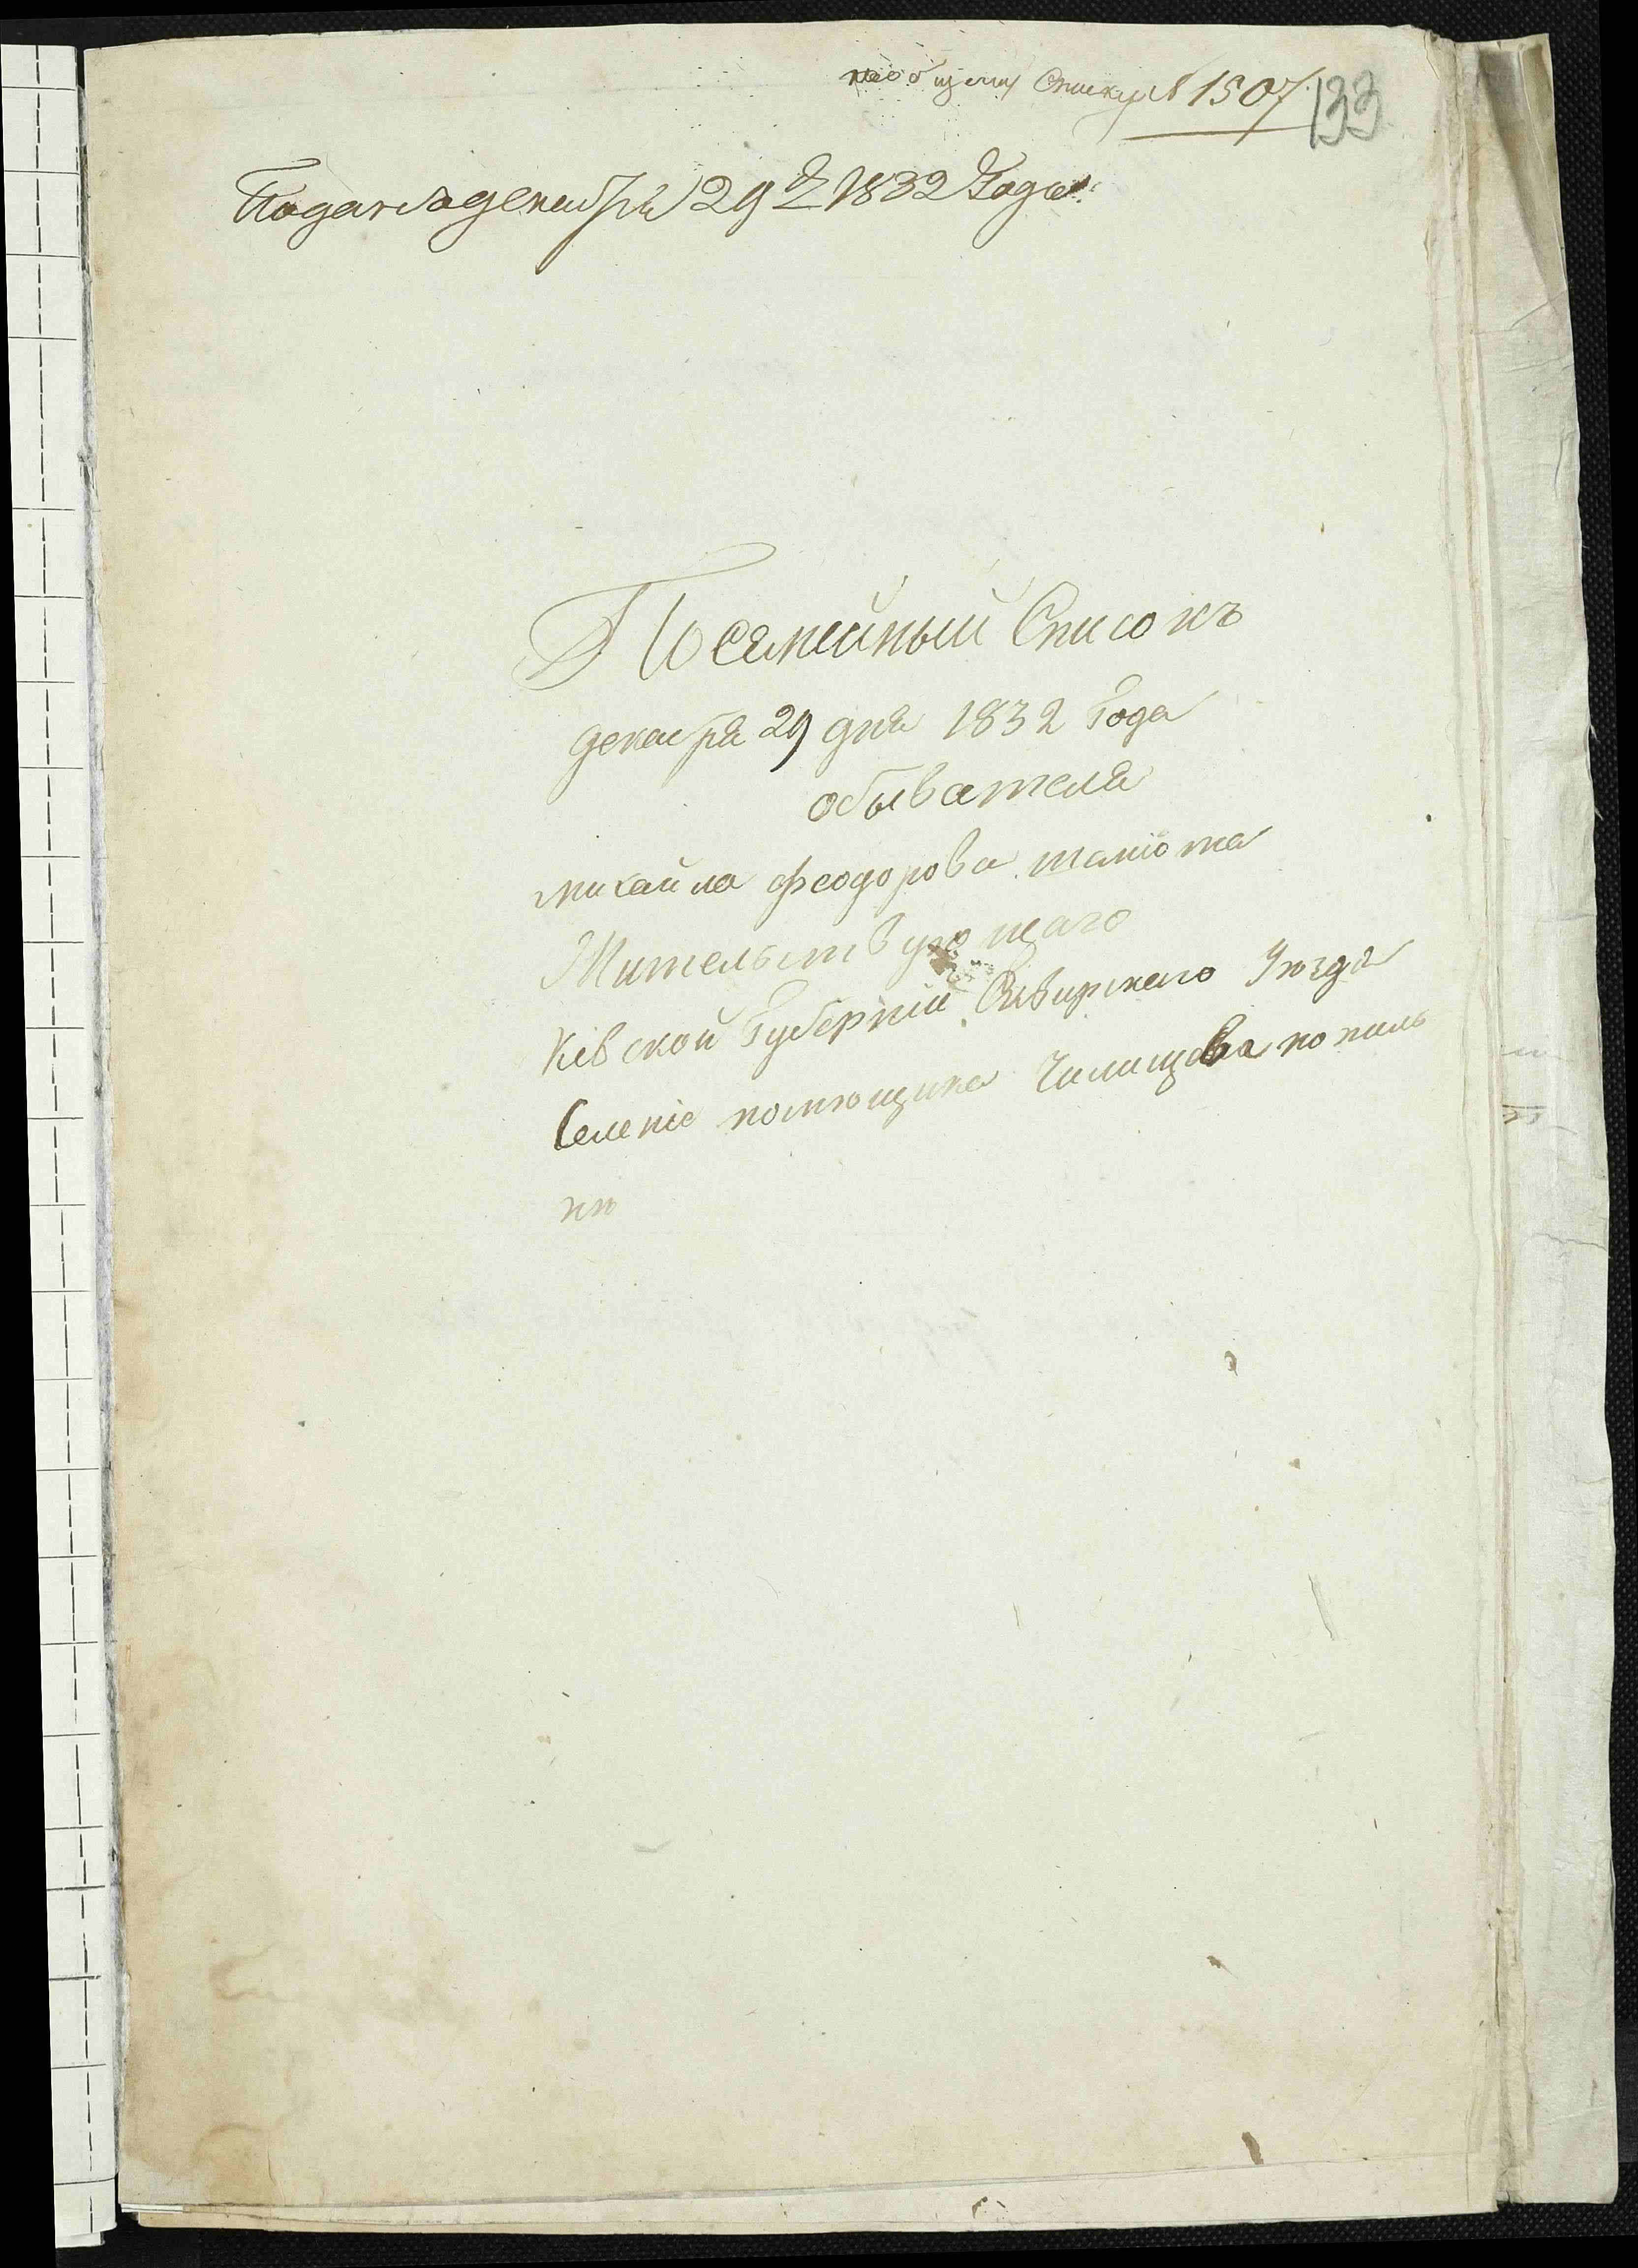 пообщему Списку № 1507.
133
Подано декабря 29 д 1832 Года
Посемейный Списокъ
декабря 29 дня 1832 Года
обывателя
михайла феодорова
Жительствующаго
Кіевской Губерніи Сквирскаго Уезда
Селеніе помющика Чилищева попиль
не